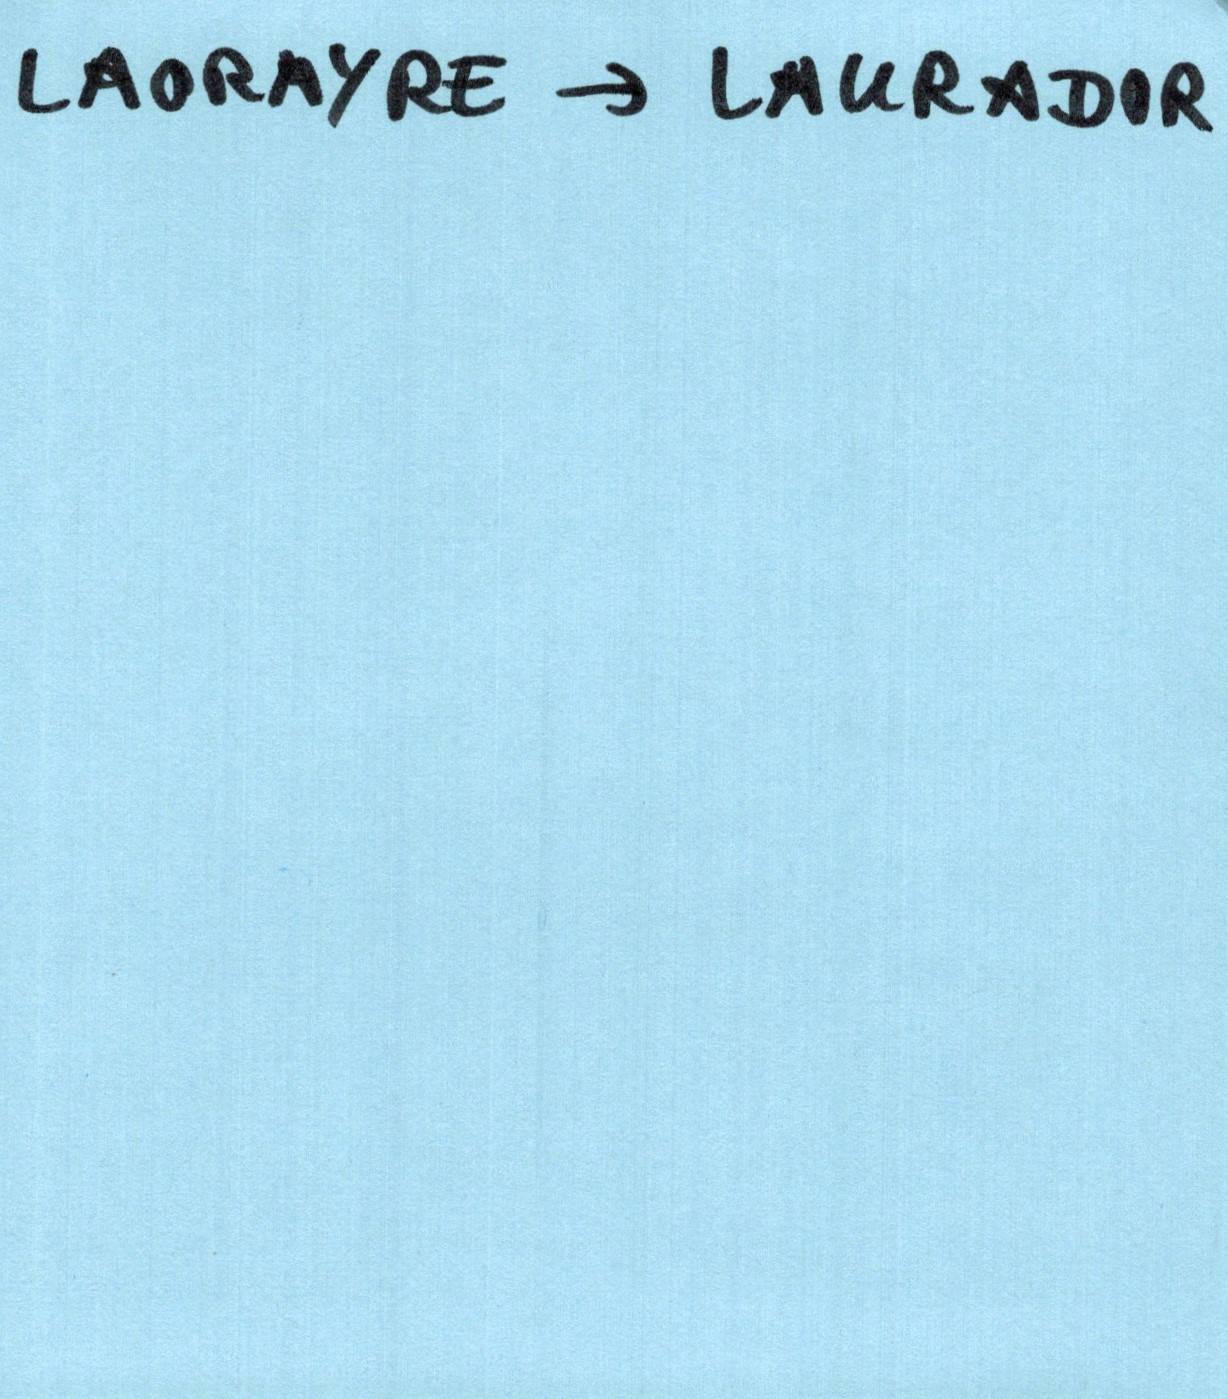 LAORAYRE → LAURADOR